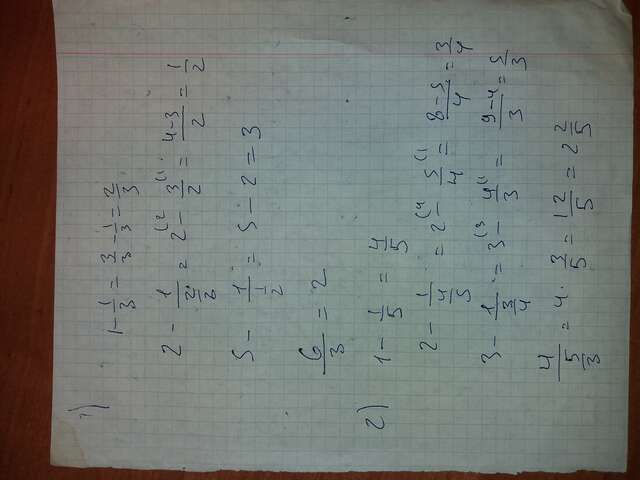 1)
1 - 1/3 = 3/3 - 1/3 = 2/3
2 - 1/(2/3) = 2(2 - 3/2(1 = (4-3)/2 = 1/2
5 - 1/(1/2) = 5 - 2 = 3
6/3 = 2
2)
1 - 1/5 = 4/5
2 - 1/(4/5) = 2(4 - 5/4(1 = (8-5)/4 = 3/4
3 - 1/(3/4) = 3(3 - 4/3(1 = (9-4)/3 = 5/3
4/(5/3) = 4 · 3/5 = 12/5 = 2 2/5